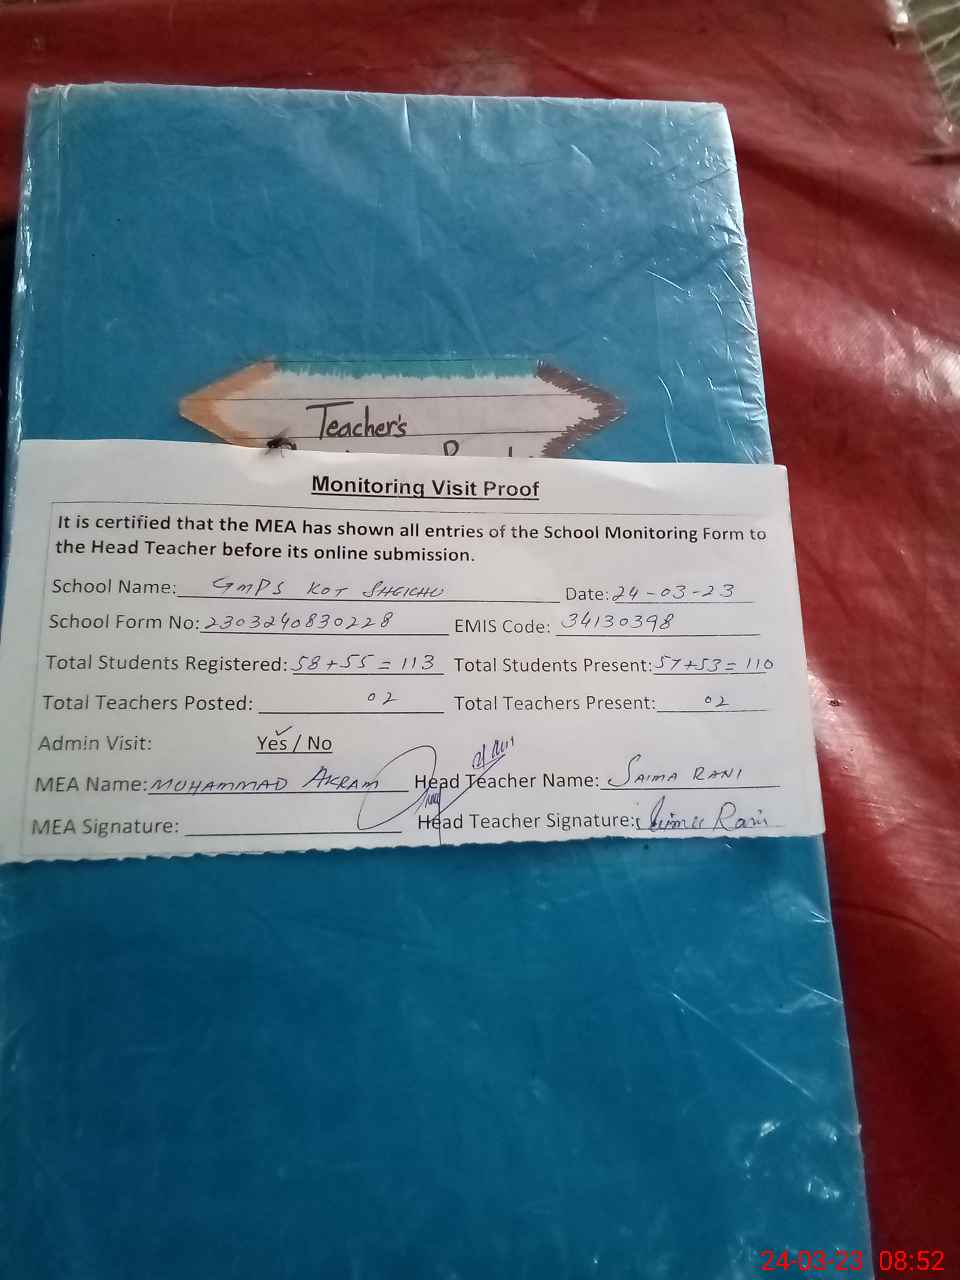 Teacher's
Monitoring Visit Proof
It is certified that the MEA has shown all entries of the School Monitoring Form to
the Head Teacher before its online submission.
School Name: GMPS KOT SHEIKHU Date: 24-03-23
School Form No: 2303240830228 EMIS Code: 34130398
Total Students Registered: 58+55=113 Total Students Present: 57+53=110
Total Teachers Posted: 02 Total Teachers Present: 02
Admin Visit: Yes / No
MEA Name: MUHAMMAD AKRAM Head Teacher Name: SAIMA RANI
MEA Signature: Head Teacher Signature: Saima Rani
24-03-23 08:52